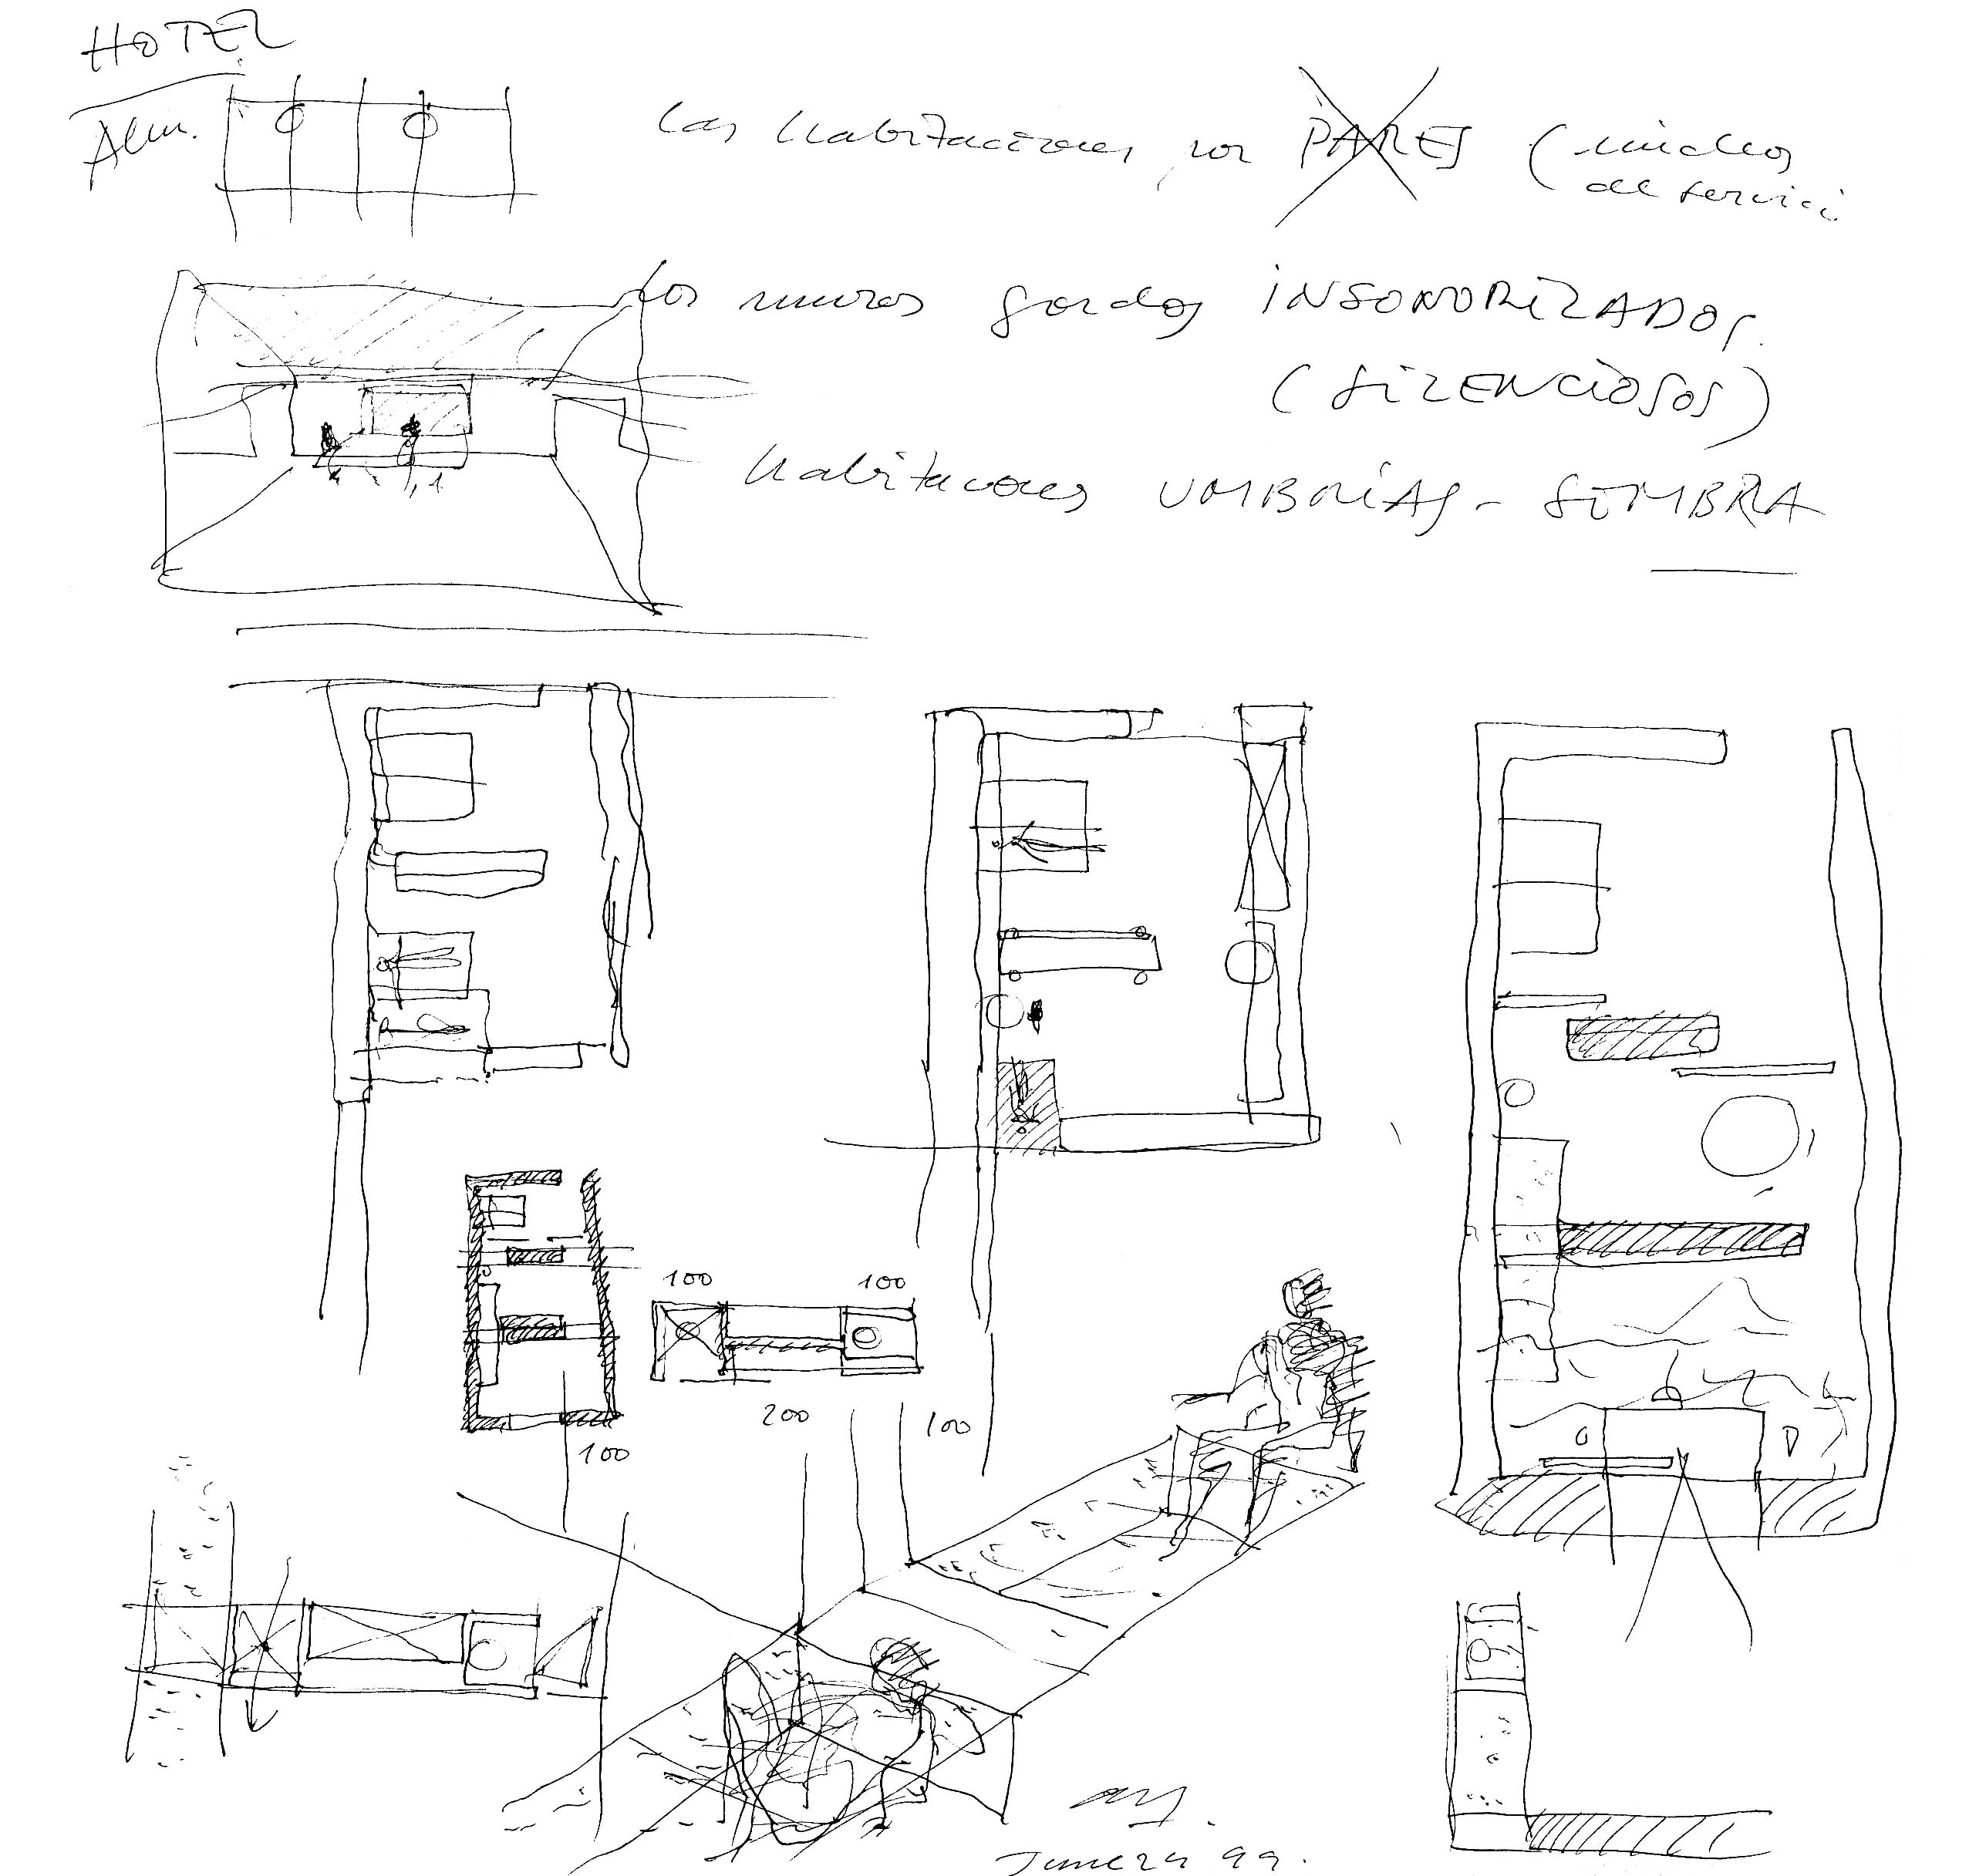 HOTEL
Alm.
las habitaciones por PARES (núcleos
de servici
los muros gordos INSONORIZADOS.
(SILENCIOSOS)
habitaciones UMBRÍAS - SOMBRA
100 100
200
100
100
June 24 99.